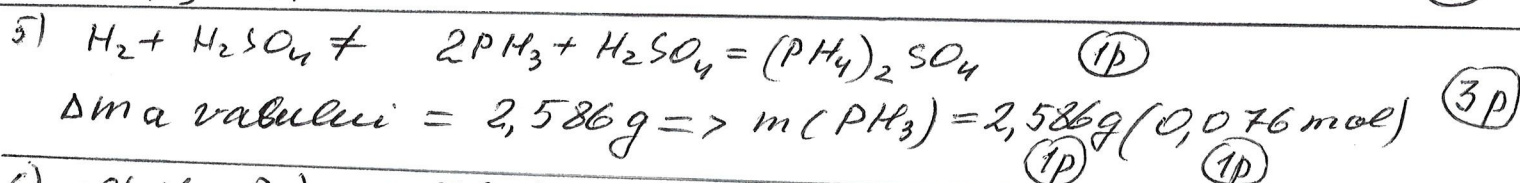 5) H₂ + H₂SO₄ ≠ 2PH₃ + H₂SO₄ = (PH₄)₂SO₄ 1p
Δm a vasului = 2,586g => m(PH₃) = 2,586g (0,076 mol) 3p
1p 1p